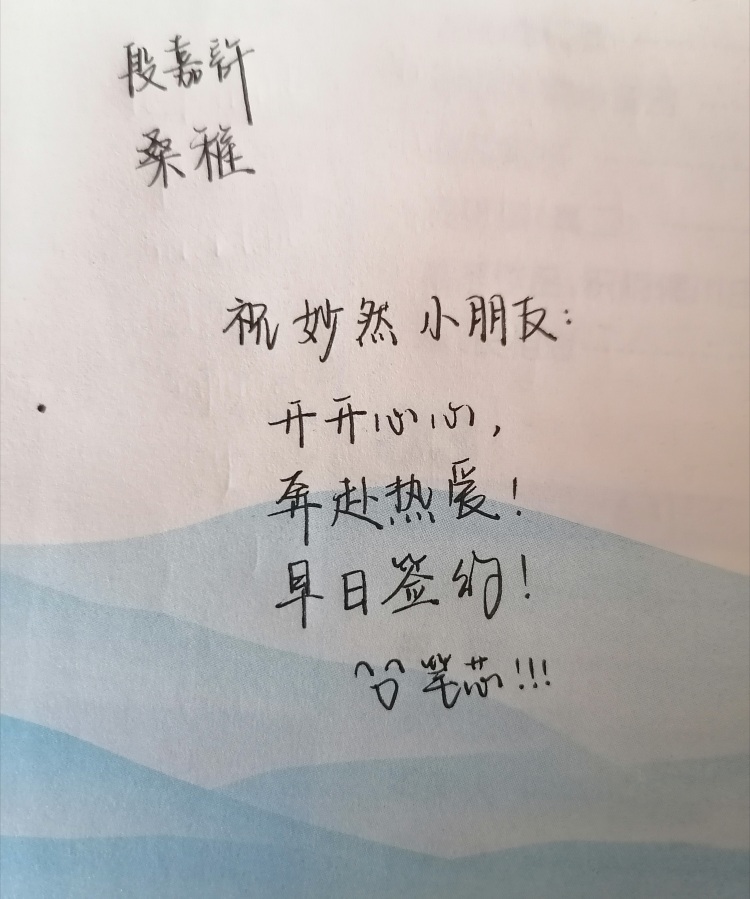 段嘉許
桑稚
祝妙然小朋友:
开开心心,
奔赴热爱!
早日签约!
笔芯!!!